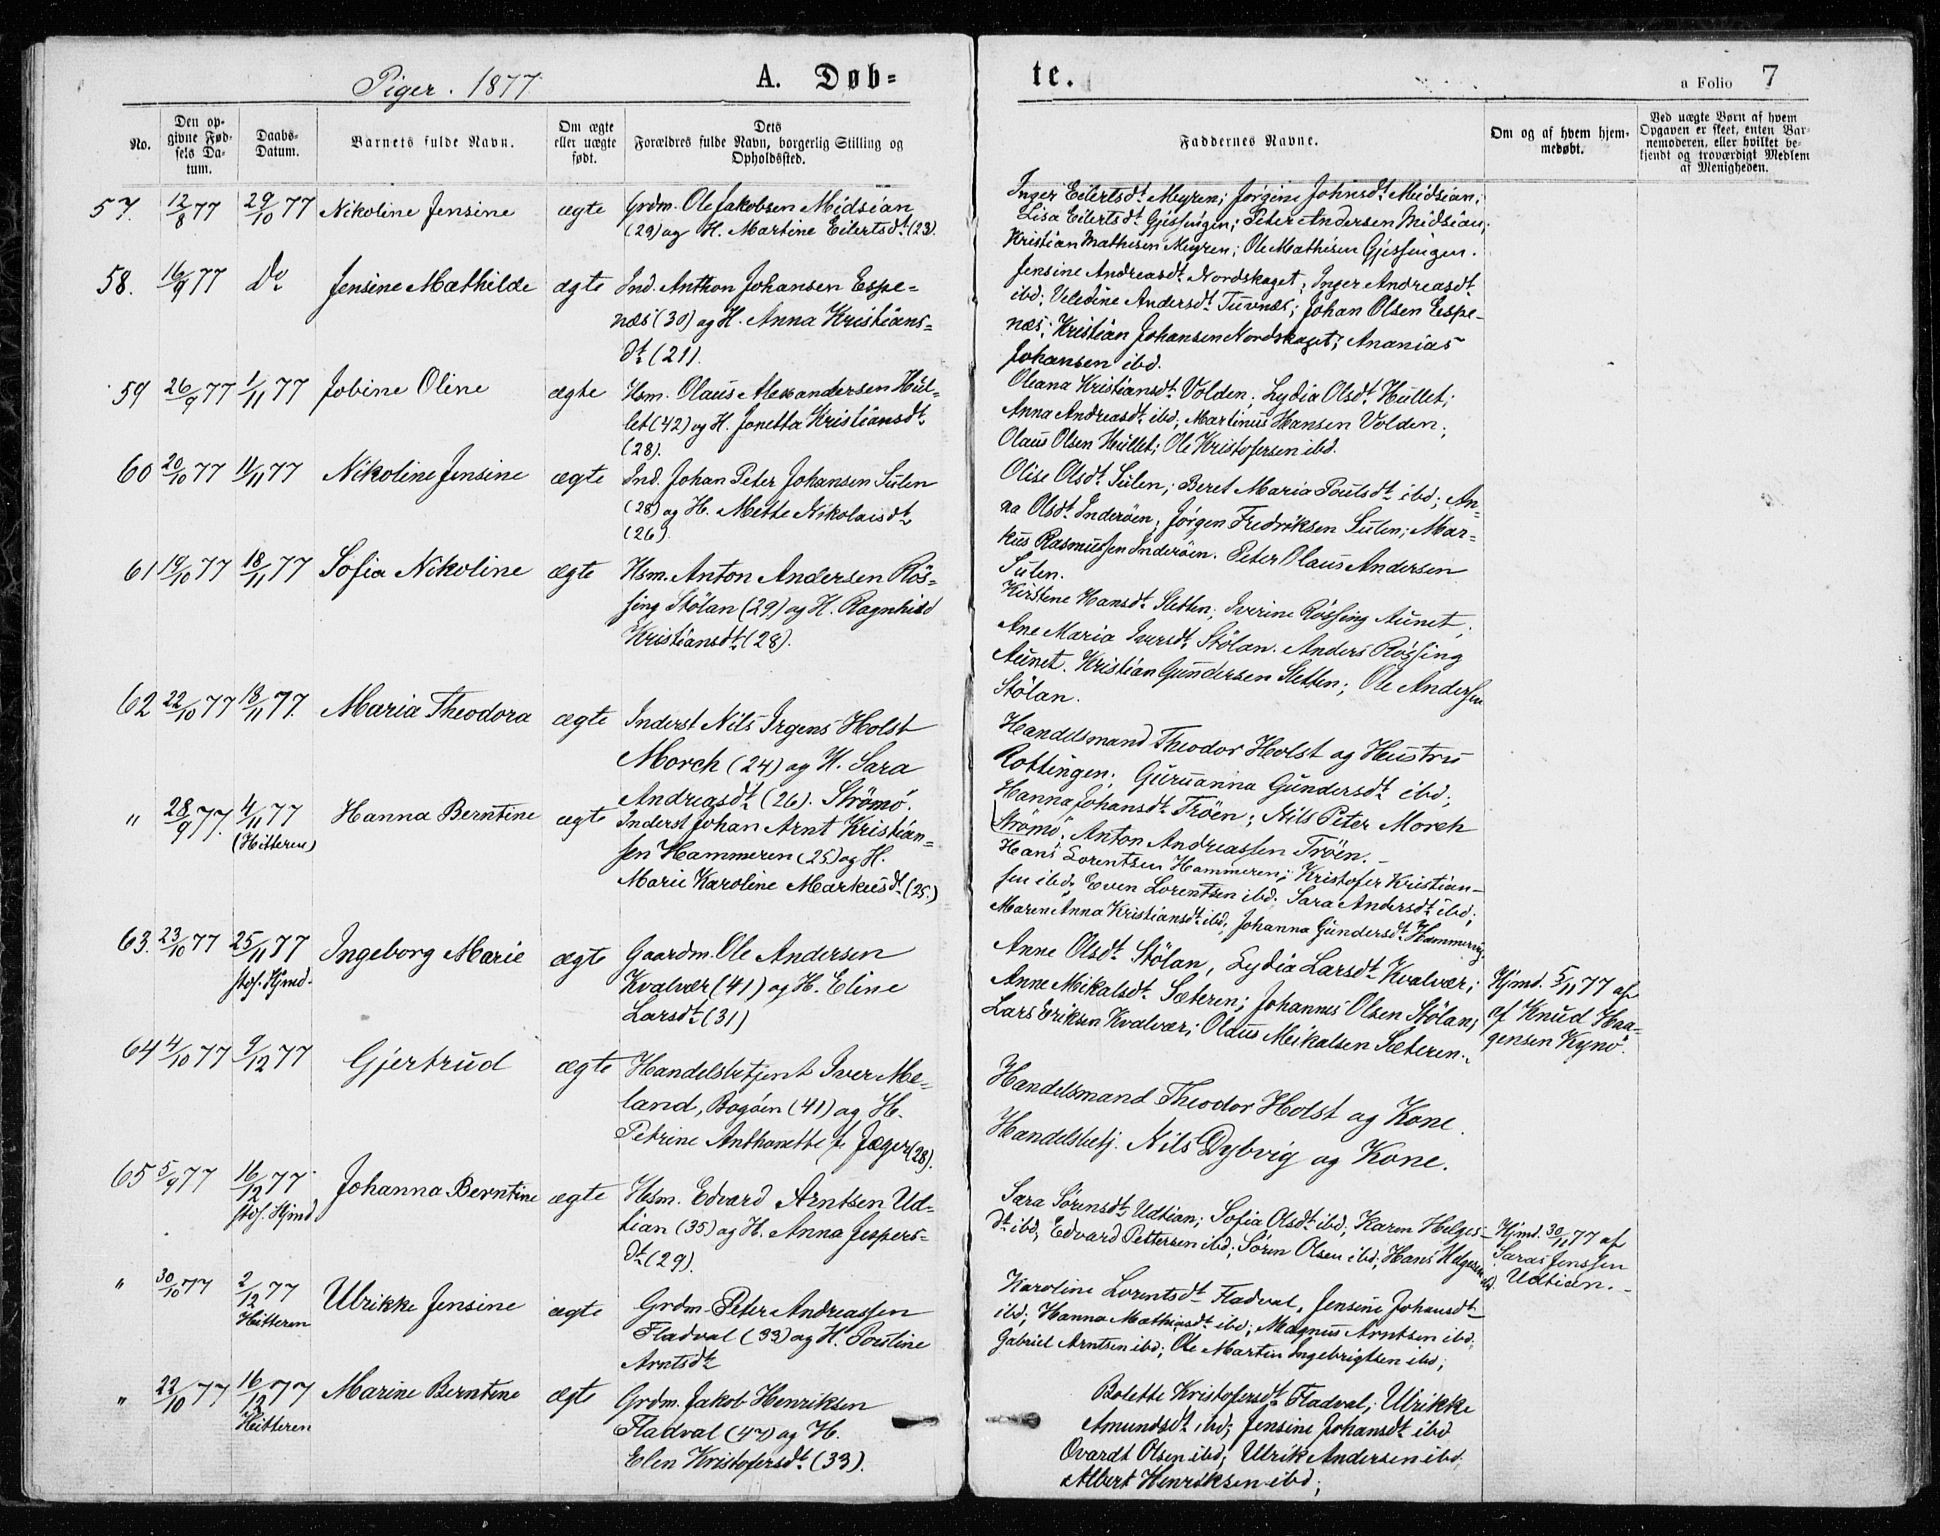 Piger. 1877
A. Døb=
te.
a Folio 7
No.
Den op-
givne Fød-
sels Da-
tum.
Daabs-
Datum.
Barnets fulde Navn.
Om ægte
eller uægte
født.
Dets
Forældres fulde Navn, borgerlig Stilling og
Opholdssted.
Faddernes Navne.
Om og af hvem hjem-
medøbt.
Ved uægte Børn af hvem
Opgaven er skeet, enten Bar-
nemoderen, eller hvilket be-
kjendt og troværdigt Medlem
af Menigheden.
57. 12/8 77 29/10 77 Nikoline Jensine ægte Grdm. Ole Jakobsen Midsian
(29) og H. Martine Eilertsdt. (23).
Inger Eilertsdt. Meyren; Jørgine Johnsdt. Midsian;
Lisa Eilertsdt. Gjessingen; Peter Andersen Midsian;
Kristian Mathisen Meyren; Ole Mathisen Gjessingen.
58. 16/9 77 Do Jensine Mathilde ægte Ind. Anthon Johansen Espe=
næs (30) og H. Anna Kristians=
dt. (21).
Jensine Andreasdt. Nordskaget; Inger Andreasdt.
ibd; Veledine Andersdt. Tuvnæs; Johan Olsen Espe-
næs; Kristian Johansen Nordskaget; Ananias
Johansen ibd.
59 26/9 77 1/11 77 Jobine Oline ægte Hsm. Olaus Alexandersen Hul-
let (42) og H. Jonetta Kristiansdt.
(28).
Oleana Kristiansdt. Volden; Lydia Olsdt. Hullet;
Anna Andreasdt. ibd; Martinus Hansen Volden;
Olaus Olsen Hullet; Ole Kristofersen ibd.
60 20/10 77 11/11 77 Nikoline Jensine ægte Ind. Johan Peter Johansen Sulen
(28) og H. Mette Nikolaisdt.
(26).
Olise Olsdt. Sulen; Beret Maria Poulsdt. ibd; An-
na Olsdt. Inderøen; Jørgen Fredriksen Sulen; Mar-
kus Rasmussen Inderøen. Peter Olaus Andersen
Sulen.
61 19/10 77 18/11 77 Sofia Nikoline ægte Hsm. Anton Andersen Røs=
sing Stølan (29) og H. Ragnhild
Kristiansdt. (28).
Kirstine Hansdt. Sletten; Iverine Røssing Aunet;
Ane Maria Iversdt. Stølan. Anders Røssing
Aunet. Kristian Gundersen Sletten; Ole Andersen
Stølan.
62 22/10 77 18/11 77. Maria Theodora ægte Inderst Nils Irgens Holst
Morch (24) og H. Sara
Andreasdt. (26). Strömö.
Handelsmand Theodor Holst og Hustru
Rottingen; Guruanna Gundersdt. ibd;
Hanna Johansdt. Trøen; Nils Peter Morch
Strömö; Anton Andreassen Trøen.
" 28/9 77. 4/11 77 Hanna Berntine ægte Inderst Johan Arnt Kristian=
(Hitteren)
sen Hammeren (25) og H.
Marie Karoline Markusdt. (25.)
Hans Lorentsen Hammeren; Kristofer Kristian-
sen ibd; Even Lorentsen ibd. Sara Andersdt. ibd;
Maren Anna Kristiansdt. ibd; Johanna Gundersdt. Hammervig
63. 23/10 77 25/11 77 Ingeborg Marie ægte Gaardm. Ole Andersen
stef. Hjmd.
Kvalvær (41) og H. Eline
Larsdt. (31)
Anne Olsdt. Stølan, Lydia Larsdt. Kvalvær;
Anne Mikalsdt. Sæteren; Johannes Olsen Stølan;
Lars Eriksen Kvalvær; Olaus Mikalsen Sæteren.
Hjmd. 5/11 77 af
af Knud Haa-
gensen Kynö.
64 4/10 77 9/12 77 Gjertrud ægte Handelsbetjent Iver Me=
land, Bogøen (41) og H.
Petrine Anthonette f. Jæger (28).
Handelsmand Theodor Holst og Kone.
Handelsbetj. Nils Dybvig og Kone.
65 5/9 77 16/12 77 Johanna Berntine ægte Hsm. Edvard Arntsen Ud-
stef. Hjmd
tian (35) og H. Anna Jespers=
dt. (29).
Sara Sørensdt. Udtian; Sofia Olsdt. ibd; Karen Helges-
dt. ibd; Edvard Pettersen ibd; Søren Olsen ibd; Hans Helgesen ibd.
Hjmd. 30/11 77 af
Sara Jenssen
Udtian.
" 30/10 77 2/12 77 Ulrikke Jensine ægte Grdm. Peter Andreassen
Hitteren
Fladval (33) og H. Pouline
Arntsdt.
Karoline Lorentsdt. Fladval, Jensine Johansdt.
ibd; Hanna Mathiasdt. ibd; Magnus Arntsen ibd;
Gabriel Arntsen ibd; Ole Martin Ingebrigtsen ibd;
" 22/10 77 16/12 77 Marine Berntine ægte Grdm. Jakob Henriksen
Hitteren
Fladval (47) og H.
Elen Kristofersdt. (33).
Bolette Kristofersdt. Fladval; Ulrikke
Amundsdt. ibd; Jensine Johansdt. ibd
Ovardt Olsen ibd; Ulrik Andersen ibd.
Albert Henriksen ibd;